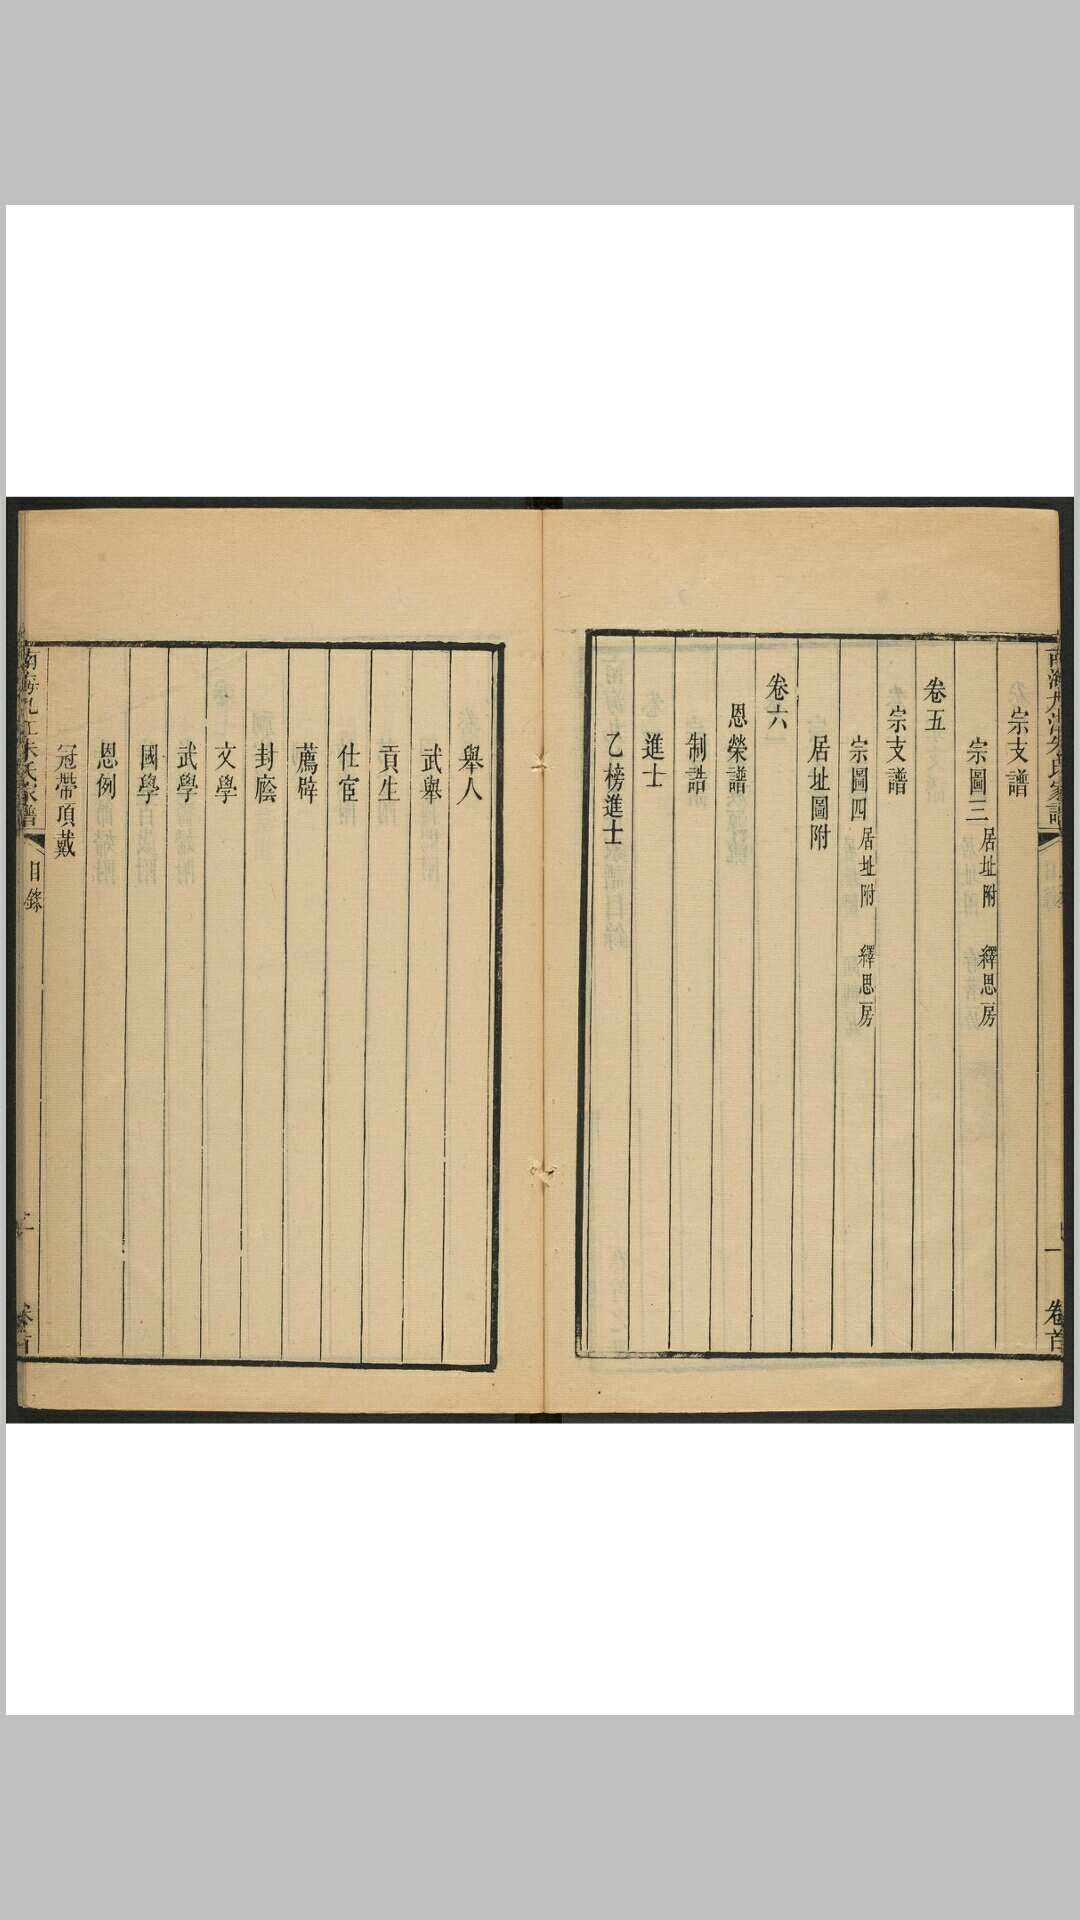 南海九江朱氏家譜
一
卷首
宗支譜
宗圖三 居址附 繹思房
卷五
宗支譜
宗圖四 居址附 繹思房
居址圖附
卷六
恩榮譜
制誥
進士
乙榜進士
舉人
武舉
貢生
仕宦
薦辟
封廕
文學
武學
國學
恩例
冠帶頂戴
南海九江朱氏家譜
目錄
二
卷首